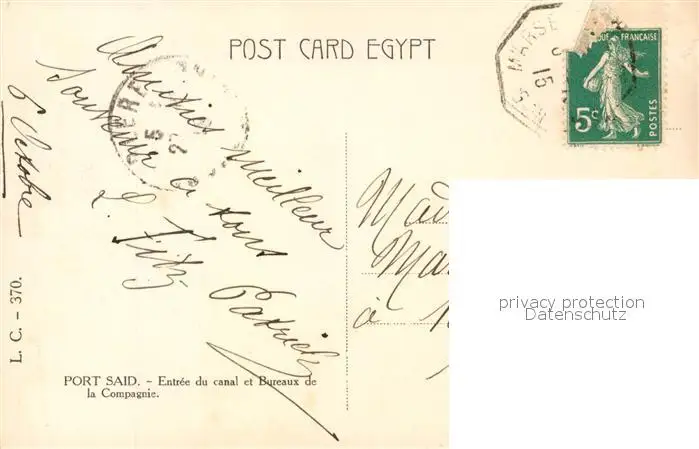 POST CARD EGYPT
MARSE
15
QUE FRANÇAISE
5c
POSTES
5
2
6 Octobre
Amitiés meilleur
souvenir à tous
L. Fitz
Patrick
Mad
Ma
à
L. C. - 370.
PORT SAID. - Entrée du canal et Bureaux de
la Compagnie.
privacy protection
Datenschutz